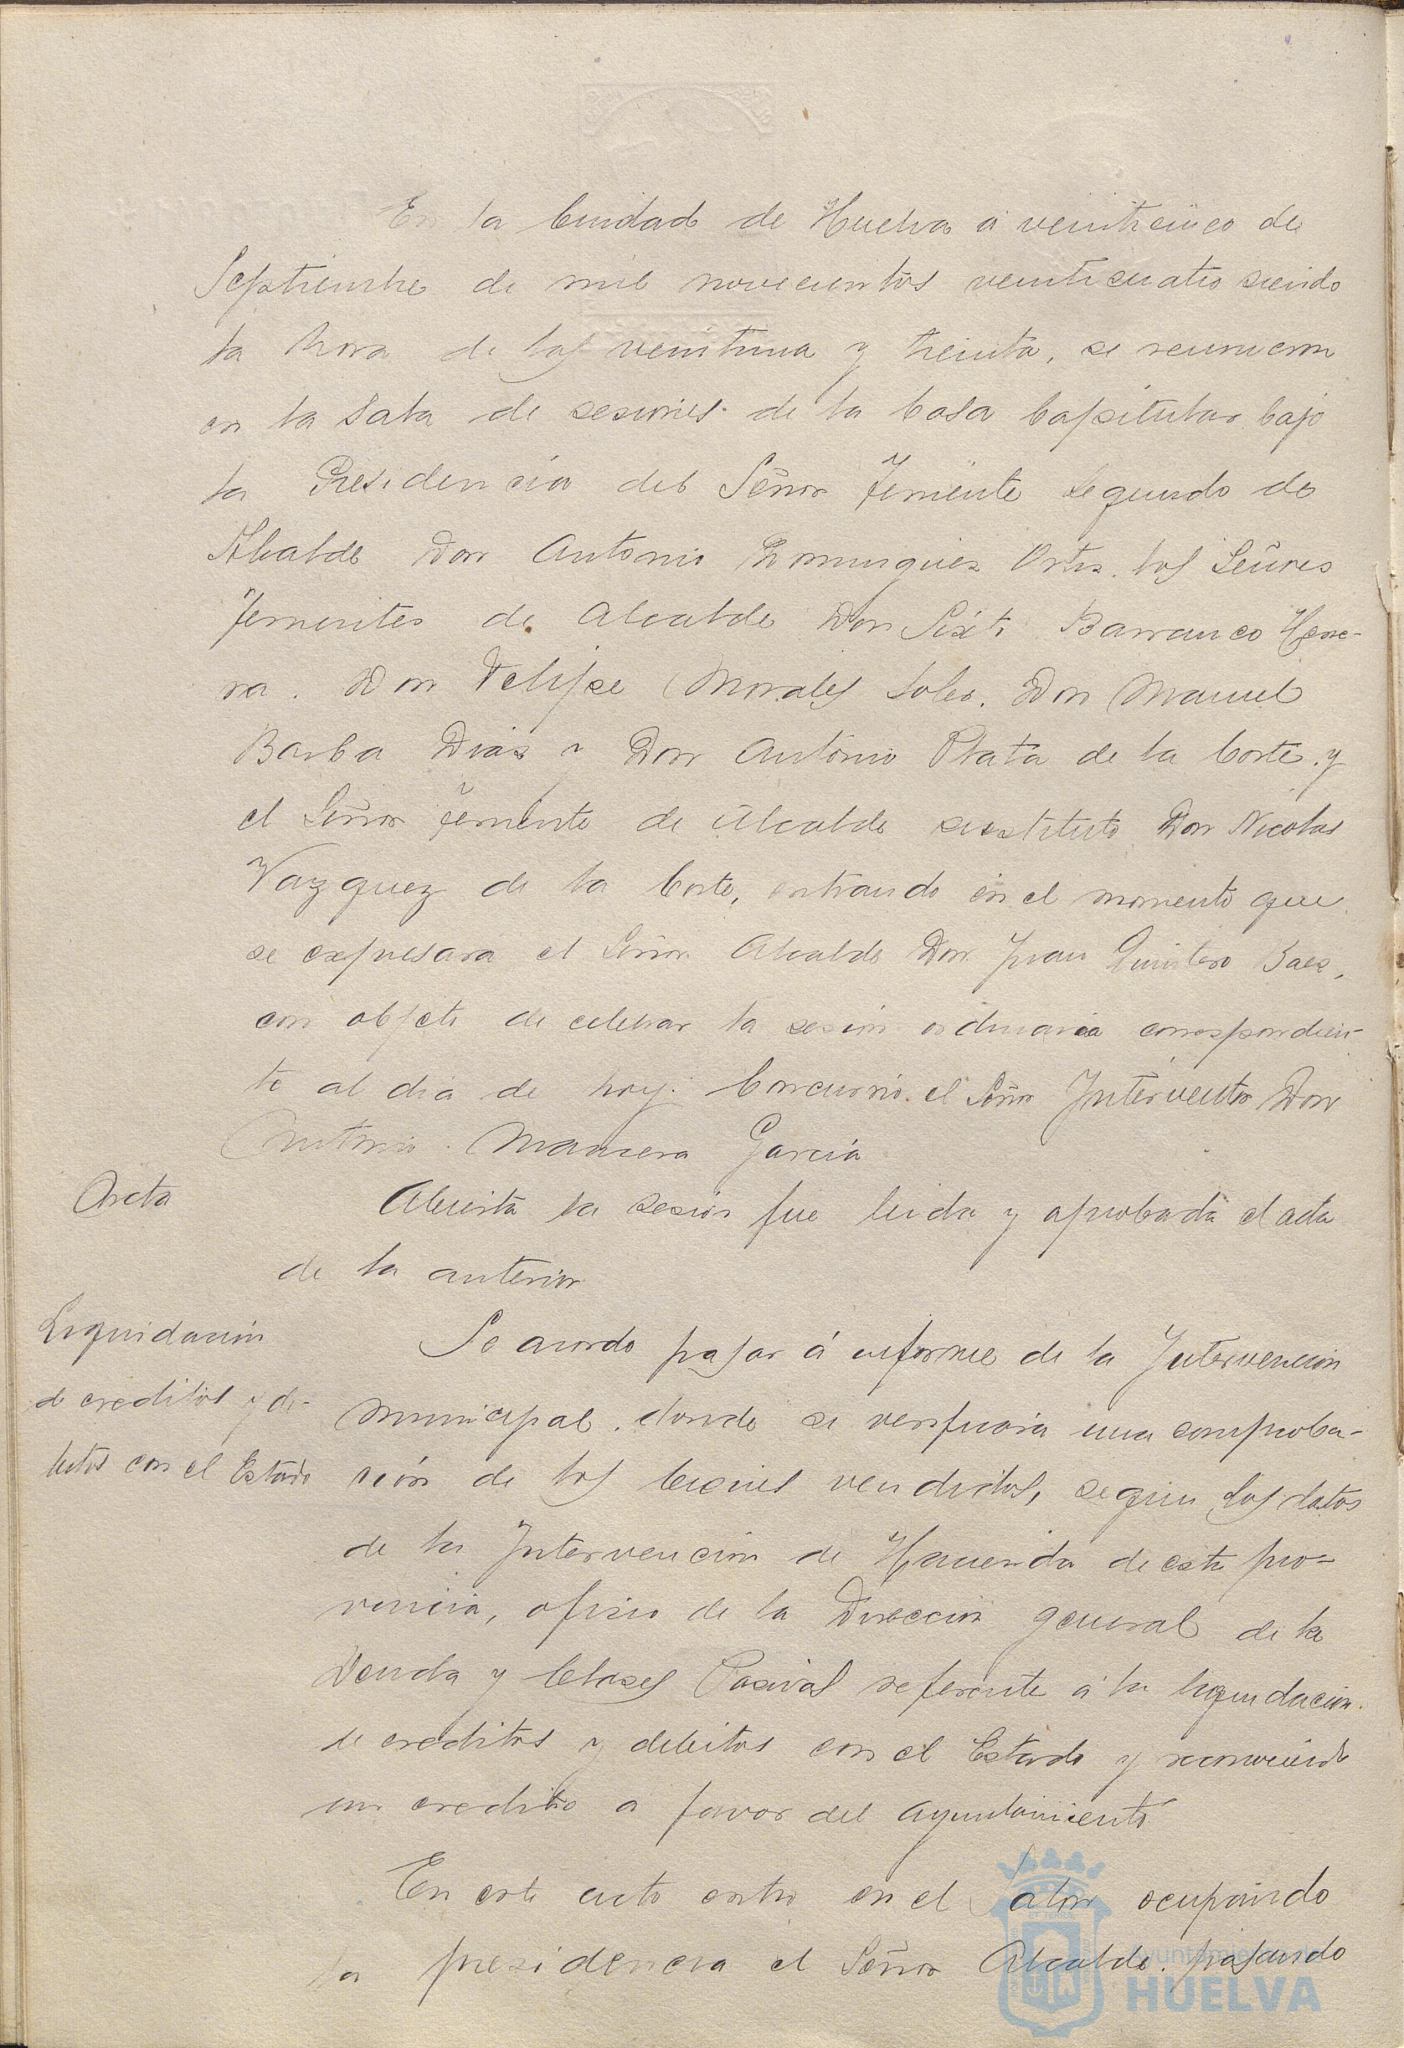 En la Ciudad de Huelva á veinticinco de
Septiembre de mil novecientos veinticuatro siendo
la hora de las veintiuna y treinta, se reunieron
en la Sala de sesiones de la Casa Capitular bajo
la Presidencia del Señor Teniente segundo de
Alcalde Don Antonio Dominguez Ortiz, los Señores
Tenientes de Alcalde Don Sixto Barranco Herre-
ra. Don Felipe Morales Soler. Don Manuel
Barba Diaz y Don Antonio Plata de la Corte y
el Señor Teniente de Alcalde sustituto Don Nicolas
Vazquez de la Corte, entrando en el momento que
se expresara el Señor Alcalde Don Juan Quintero Baez,
con objeto de celebrar la sesión ordinaria correspondien-
te al dia de hoy. Concurrió el Señor Interventor Don
Antonio Mancera García
Acta
Abierta la sesión fue leida y aprobada el acta
de la anterior
Liquidación
de creditos y de-
bitos con el Estado
Se acordo pasar á informe de la Intervencion
municipal, donde se verificará una comproba-
ción de los bienes vendidos, segun los datos
de la Intervencion de Hacienda de esta pro-
vincia, oficio de la Direccion general de la
Deuda y Clases Pasivas referente á la liquidacion
de creditos y debitos con el Estado y reconociendo
un credito a favor del Ayuntamiento
En este acto entro en el Salon ocupando
la presidencia el Señor Alcalde, pasando
Ayuntamiento
HUELVA